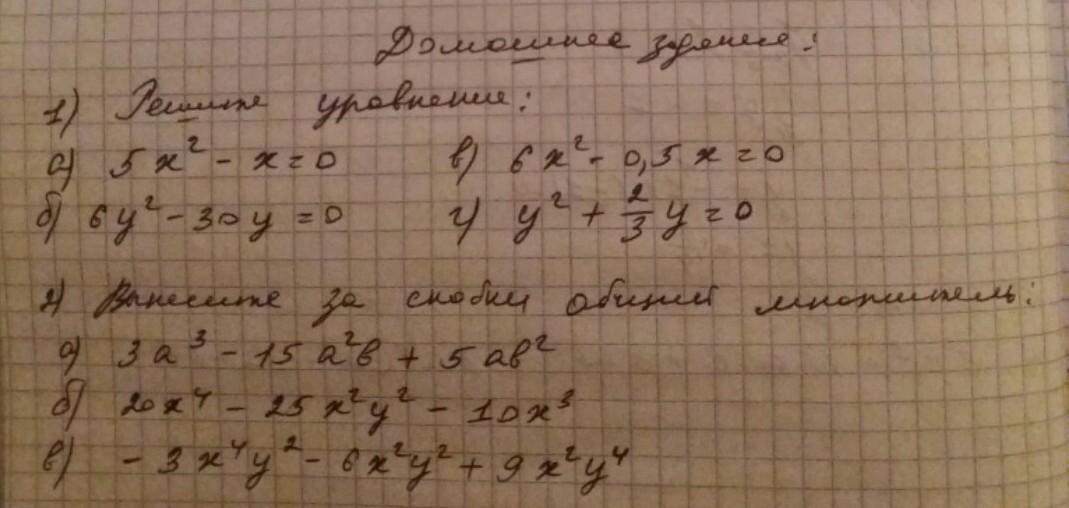 Домашнее здание:
1) Решите уравнение:
а) 5x² - x = 0 в) 6x² - 0,5x = 0
б) 6y² - 30y = 0 г) y² + 2/3 y = 0
2) Вынесите за скобки общий множитель:
а) 3a³ - 15a²b + 5ab²
б) 20x⁴ - 25x²y² - 10x³
в) - 3x⁴y² - 6x²y² + 9x²y⁴